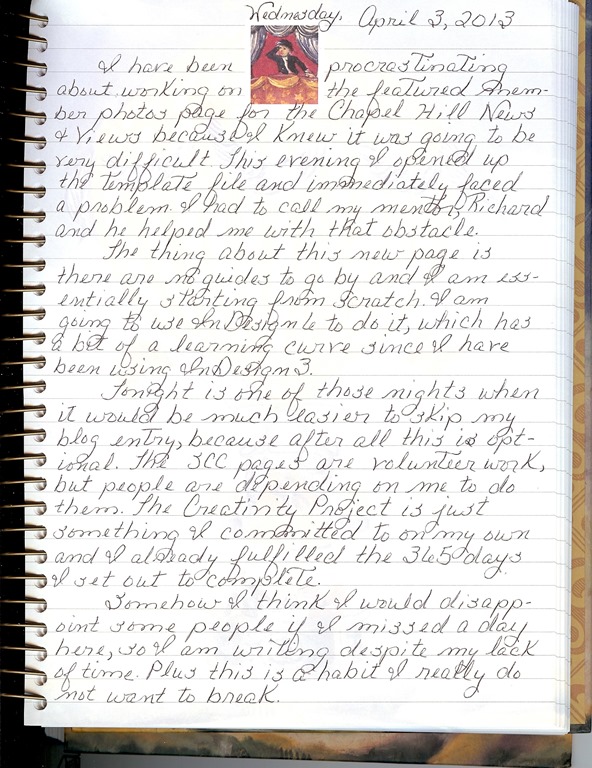 Wednesday, April 3, 2013
I have been procrastinating
about working on the featured mem-
ber photos page for the Chapel Hill News
& Views because I knew it was going to be
very difficult. This evening I opened up
the template file and immediately faced
a problem. I had to call my mentor, Richard
and he helped me with that obstacle.
The thing about this new page is
there are no guides to go by and I am ess-
entially starting from scratch. I am
going to use InDesign 6 to do it, which has
a bit of a learning curve since I have
been using InDesign 3.
Tonight is one of those nights when
it would be much easier to skip my
blog entry, because after all this is opt-
ional. The SCC pages are volunteer work,
but people are depending on me to do
them. The Creativity Project is just
something I committed to on my own
and I already fulfilled the 365 days
I set out to complete.
Somehow I think I would disapp-
oint some people if I missed a day
here, so I am writing despite my lack
of time. Plus this is a habit I really do
not want to break.